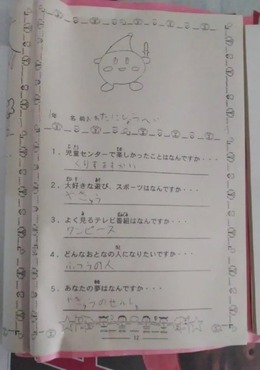 年 名前
1．児童センターで楽しかったことはなんですか・・・
くりすますかい
2．大好きな遊び、スポーツはなんですか・・・
やきゅう
3．よく見るテレビ番組はなんですか・・・
ワンピース
4．どんなおとなの人になりたいですか・・・
ふつうの人
5．あなたの夢はなんですか・・・
12